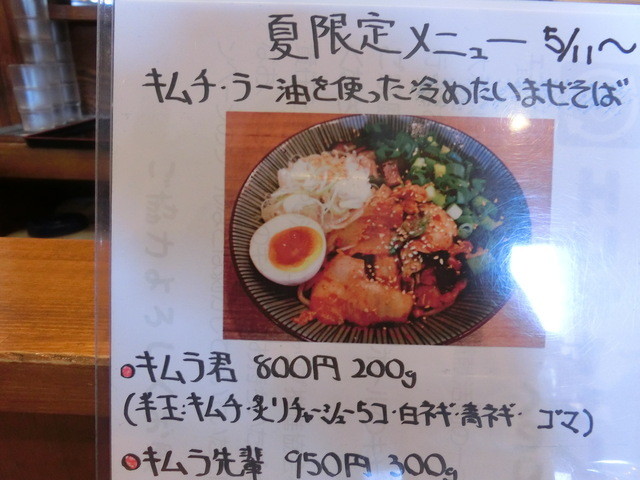 夏限定メニュー 5/11〜
キムチ・ラー油を使った冷めたいまぜそば
キムラ君 800円 200g
(半玉・キムチ・炙りチャーシュー5コ・白ネギ・青ネギ・ゴマ)
キムラ先輩 950円 300g